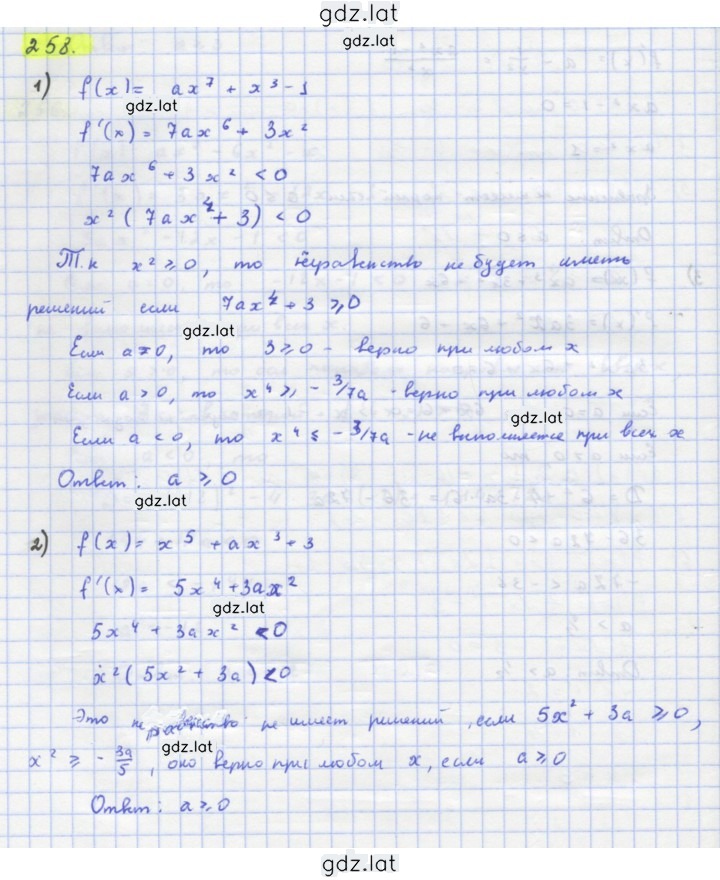 gdz.lat
258.
gdz.lat
1) f(x) = ax⁷ + x³ - 1
gdz.lat
f'(x) = 7ax⁶ + 3x²
7ax⁶ + 3x² < 0
x² (7ax⁴ + 3) < 0
Т.к x² ≥ 0, то неравенство не будет иметь
решений если 7ax⁴ + 3 ≥ 0
gdz.lat
Если a = 0, то 3 ≥ 0 - верно при любом x
Если a > 0, то x⁴ ≥ - 3/7a - верно при любом x
gdz.lat
Если a < 0, то x⁴ ≤ - 3/7a - не выполняется при всех x
Ответ: a ≥ 0
gdz.lat
2) f(x) = x⁵ + ax³ + 3
f'(x) = 5x⁴ + 3ax²
gdz.lat
5x⁴ + 3ax² < 0
x² (5x² + 3a) < 0
Это неравенство не имеет решений, если 5x² + 3a ≥ 0,
gdz.lat
x² ≥ - 3a/5, оно верно при любом x, если a ≥ 0
Ответ: a ≥ 0
gdz.lat